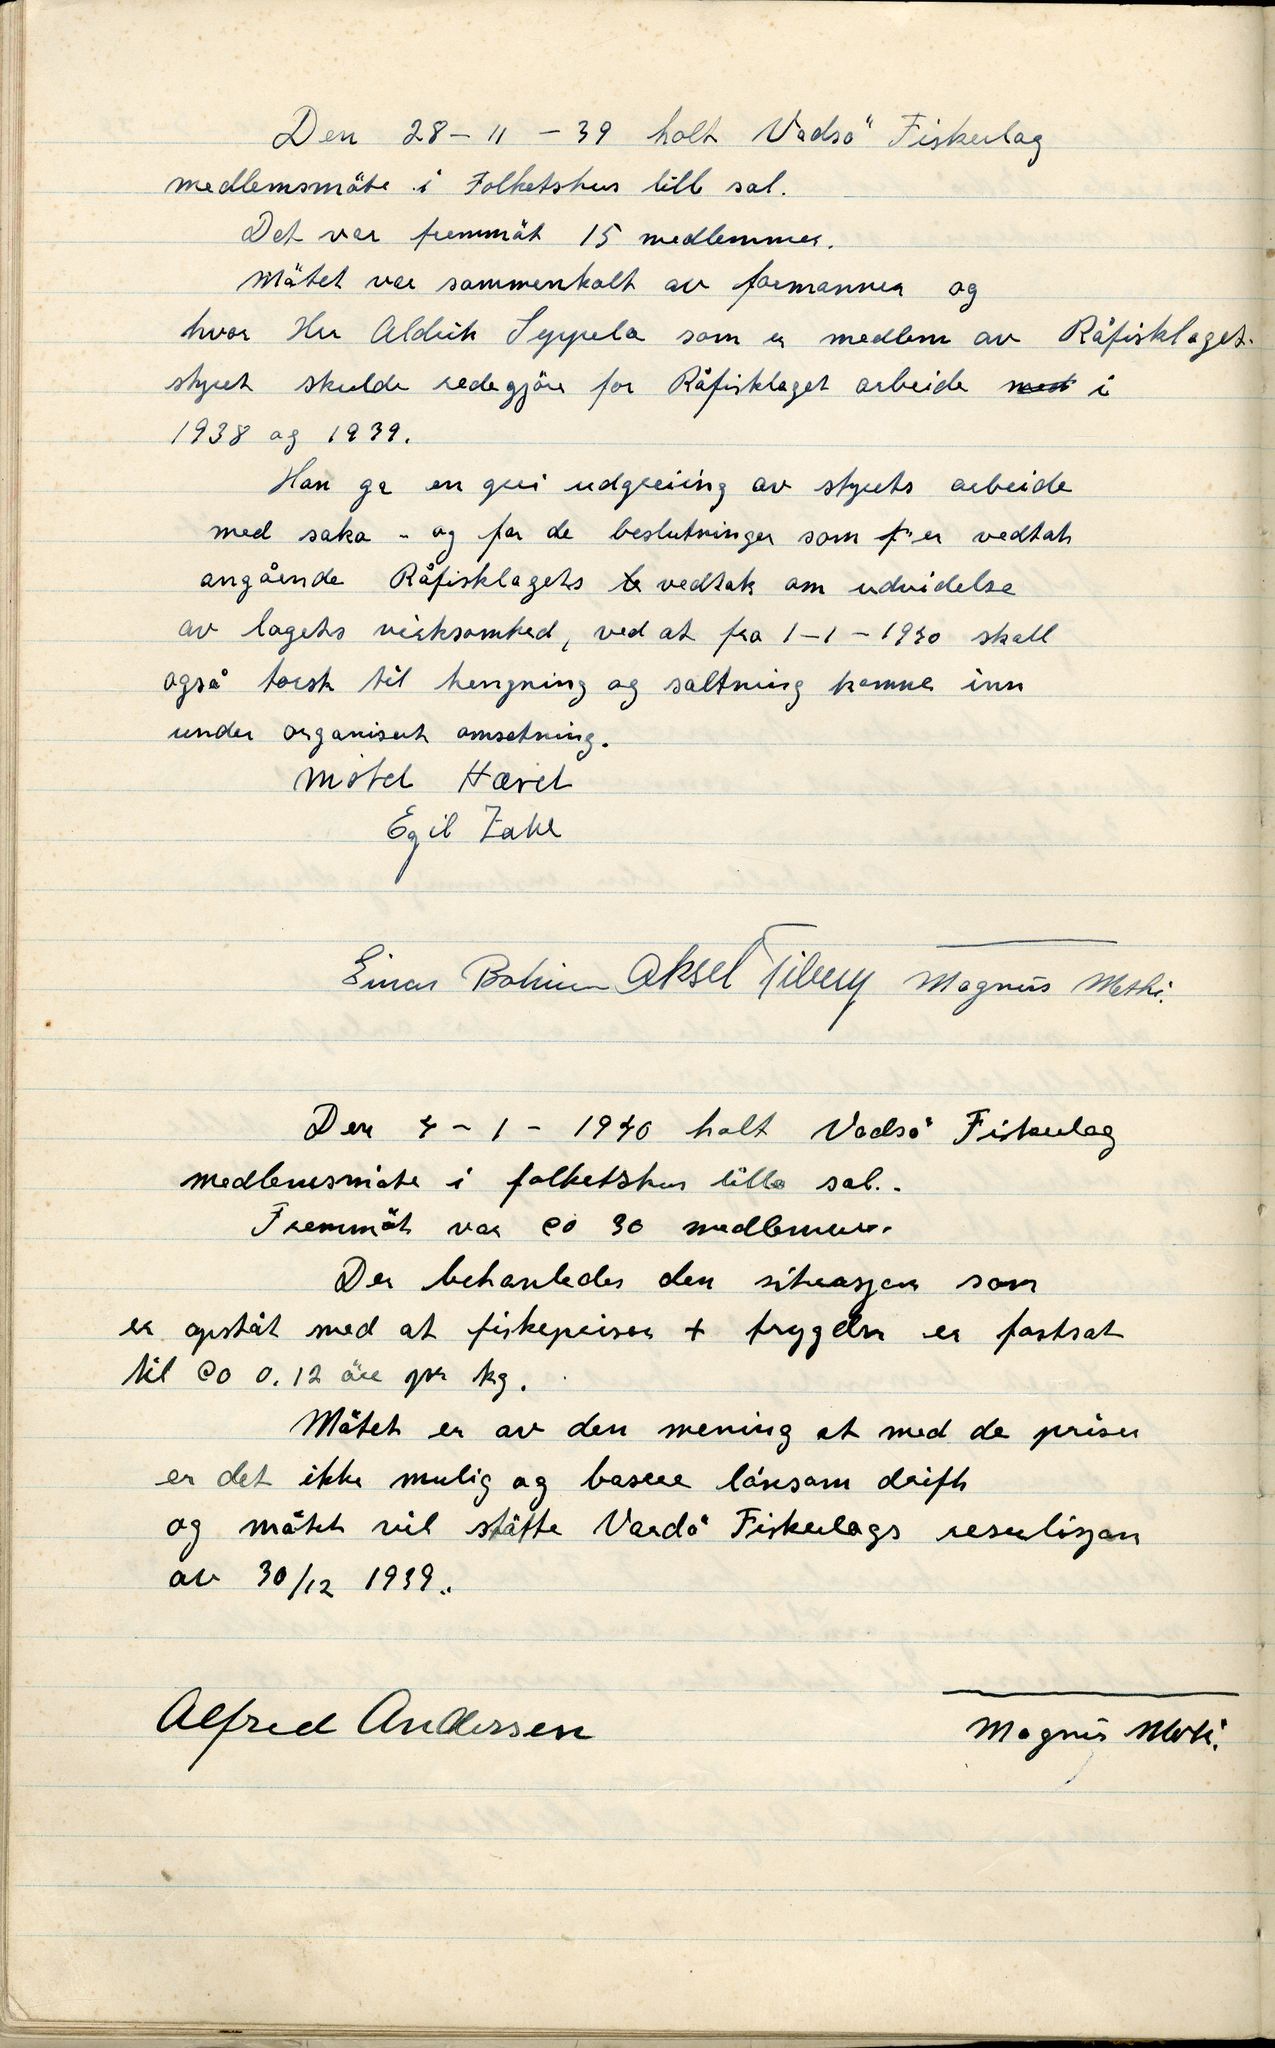 Den 28-11-39 holt Vadsö Fiskerlag
medlemsmöte i Folketshus lille sal.
Det var fremmöt 15 medlemmer.
Mötet var sammenkalt av formannen og
hvor Her Aldrik Seppela som er medlem av Råfisklaget.
styret skulde redegjöre for Råfisklaget arbeide med i
1938 og 1939.
Han ga en grei udgreiing av styrets arbeide
med saka - og for de beslutninger som er vedtat
angående Råfisklagets vedtak om udvidelse
av lagets virksomhed, ved at fra 1-1-1940 skall
også torsk til hengning og saltning komme inn
under organisert omsetning.
Mötet Hævet
Egil
Einar Aksel Tiberg Magnus
Den 4-1-1940 holt Vadsö Fiskerlag
medlemsmöte i folketshus lille sal.
Fremmöt var ca 30 medlemmer.
Der behanledes den situasjon som
er opståt med at fiskeprisen + trygden er fastsat
til ca 0.12 öre pr kg.
Mötet er av den mening at med de priser
er det ikke mulig og basere lönsom drift
og mötet vil stötte Vardö Fiskerlags resulisjon
av 30/12 1939.
Alfred Andersen Magnus